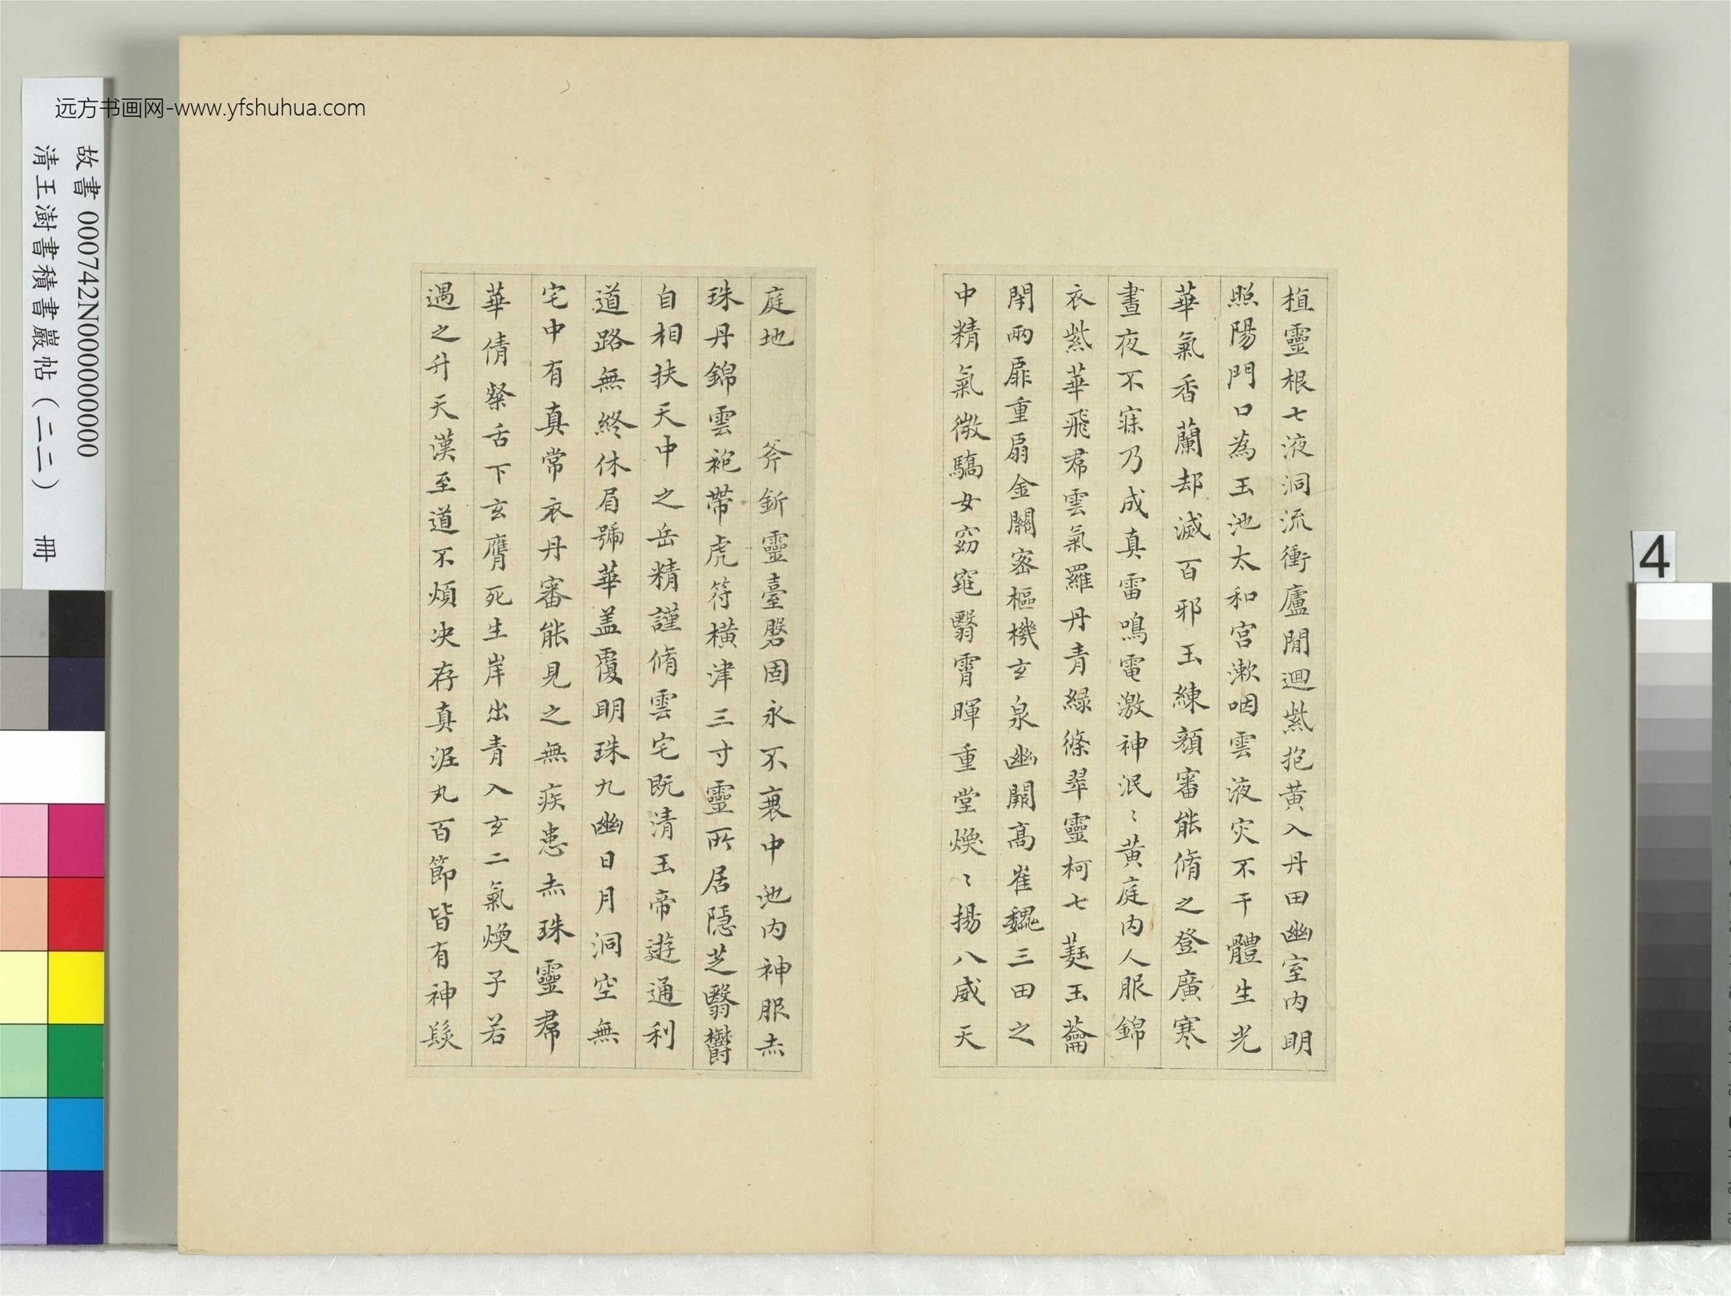 远方书画网-www.yfshuhua.com
故書 000742N000000000
清王澍書積書巖帖（二二） 冊
4
植靈根七液洞流衝廬間迴紫抱黃入丹田幽室內明
照陽門口為玉池太和宮漱咽雲液灾不干體生光
華氣香蘭却滅百邪玉練顏審能脩之登廣寒
晝夜不寐乃成真雷鳴電激神泯〻黃庭內人服錦
衣紫華飛帬雲氣羅丹青緑條翠靈柯七蕤玉蘥
閇兩扉重扇金關密樞機玄泉幽闕高崔巍三田之
中精氣微驕女窈窕翳霄暉重堂煥〻揚八威天
庭地 斧釿靈臺磐固永不衰中池內神服赤
珠丹錦雲袍帶虎符橫津三寸靈所居隱芝翳欝
自相扶天中之岳精謹脩雲宅既清玉帝遊通利
道路無終休眉號華盖覆明珠九幽日月洞空無
宅中有真常衣丹審能見之無疾患赤珠靈帬
華倩粲舌下玄膺死生岸出青入玄二氣煥子若
遇之升天漢至道不煩决存真泥丸百節皆有神髮